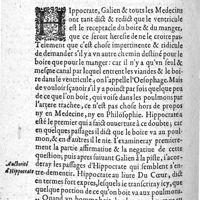 Ippocrate, Galien & touts les Medecins
ont tant dict & redict que le ventricule
est le receptacle du boire & du manger,
que ce seroit heresie de ne le croire pas.
Tellement que c'est chose impertinente & ridicule
de demander s'il y a vn autre chemin destiné pour le
boire que pour le manger: car il n'y a qu'vn seul &
mesme canal par lequel entrent les viandes & le boire
dans le ventricule, on l'appelle l'Oesophage. Mais
de vouloir sçauoir s'il y a quelque petite portion de
ce que l'on boit, qui voise dans les poulmons par
l'artere trachée, ce n'est pas chose hors de propos,
ny en Medecine, ny en Philosophie. Hippocrate a
esté le premier qui a faict ouuerture à ce doubte; car
en quelques passages il dict que le boire va au poul-
mon, & en d'autres il le nie. I'examineray premiere-
ment la partie affirmatiue & la negatiue de cette
question, puis apres suiuant Galien à la piste, i'accor-
deray les passages d'Hippocrate qui semblent se con-
tredementir. Hippocrate au liure Du Cœur, dict en
termes fort expres, lesquels ie transcriray icy, que
quelque portion de ce qu'on boit va au poulmon.
Authorité
d'Hippocrate